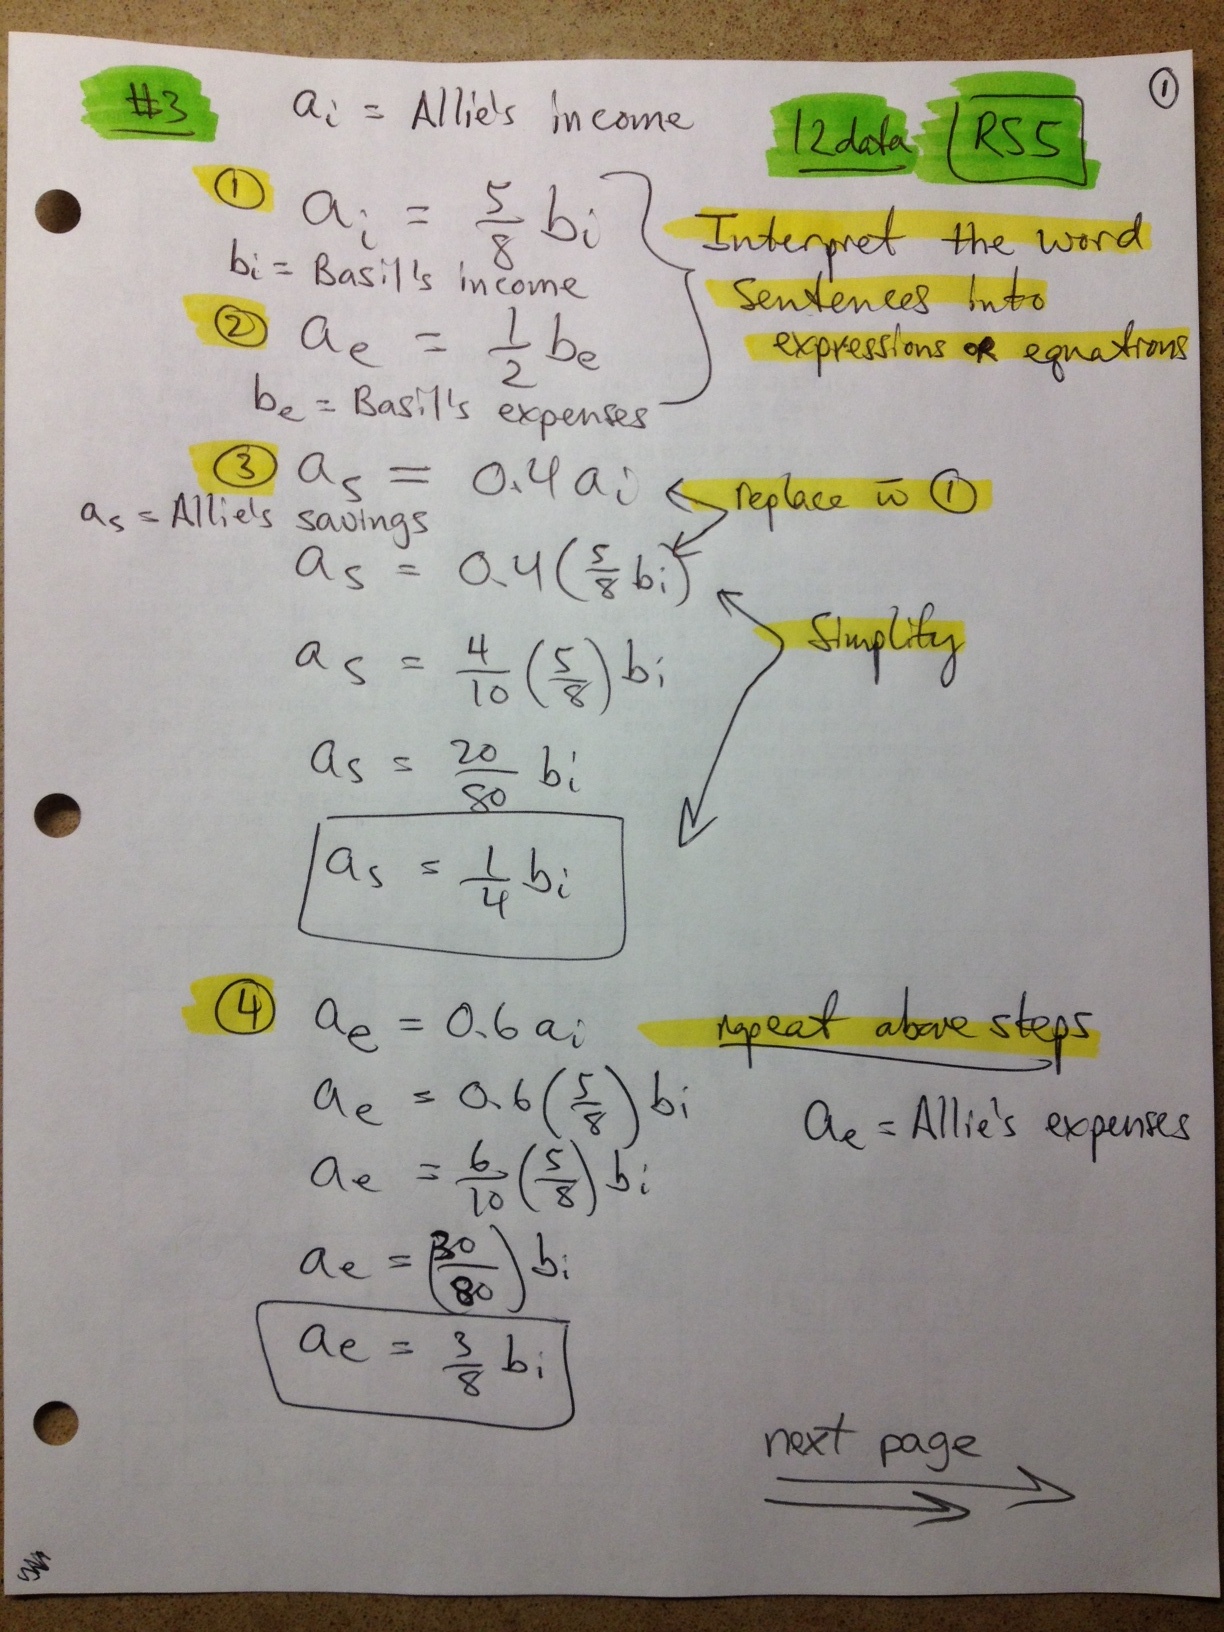 #3 a_i = Allie's income 12data RS5 ①
① a_i = 5/8 b_i
b_i = Basil's income
Interpret the word
sentences into
expressions or equations
② a_e = 1/2 b_e
b_e = Basil's expenses
③ a_s = 0.4 a_i replace in ①
a_s = Allie's savings
a_s = 0.4 (5/8 b_i)
Simplify
a_s = 4/10 (5/8) b_i
a_s = 20/80 b_i
a_s = 1/4 b_i
④ a_e = 0.6 a_i repeat above steps
a_e = 0.6 (5/8) b_i
a_e = Allie's expenses
a_e = 6/10 (5/8) b_i
a_e = (30/80) b_i
a_e = 3/8 b_i
next page